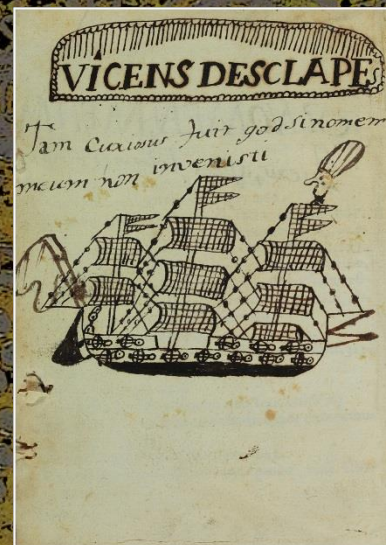 VICENS DESCLAPES
Tam curiosus fuit qod si nomem
meum non invenisti